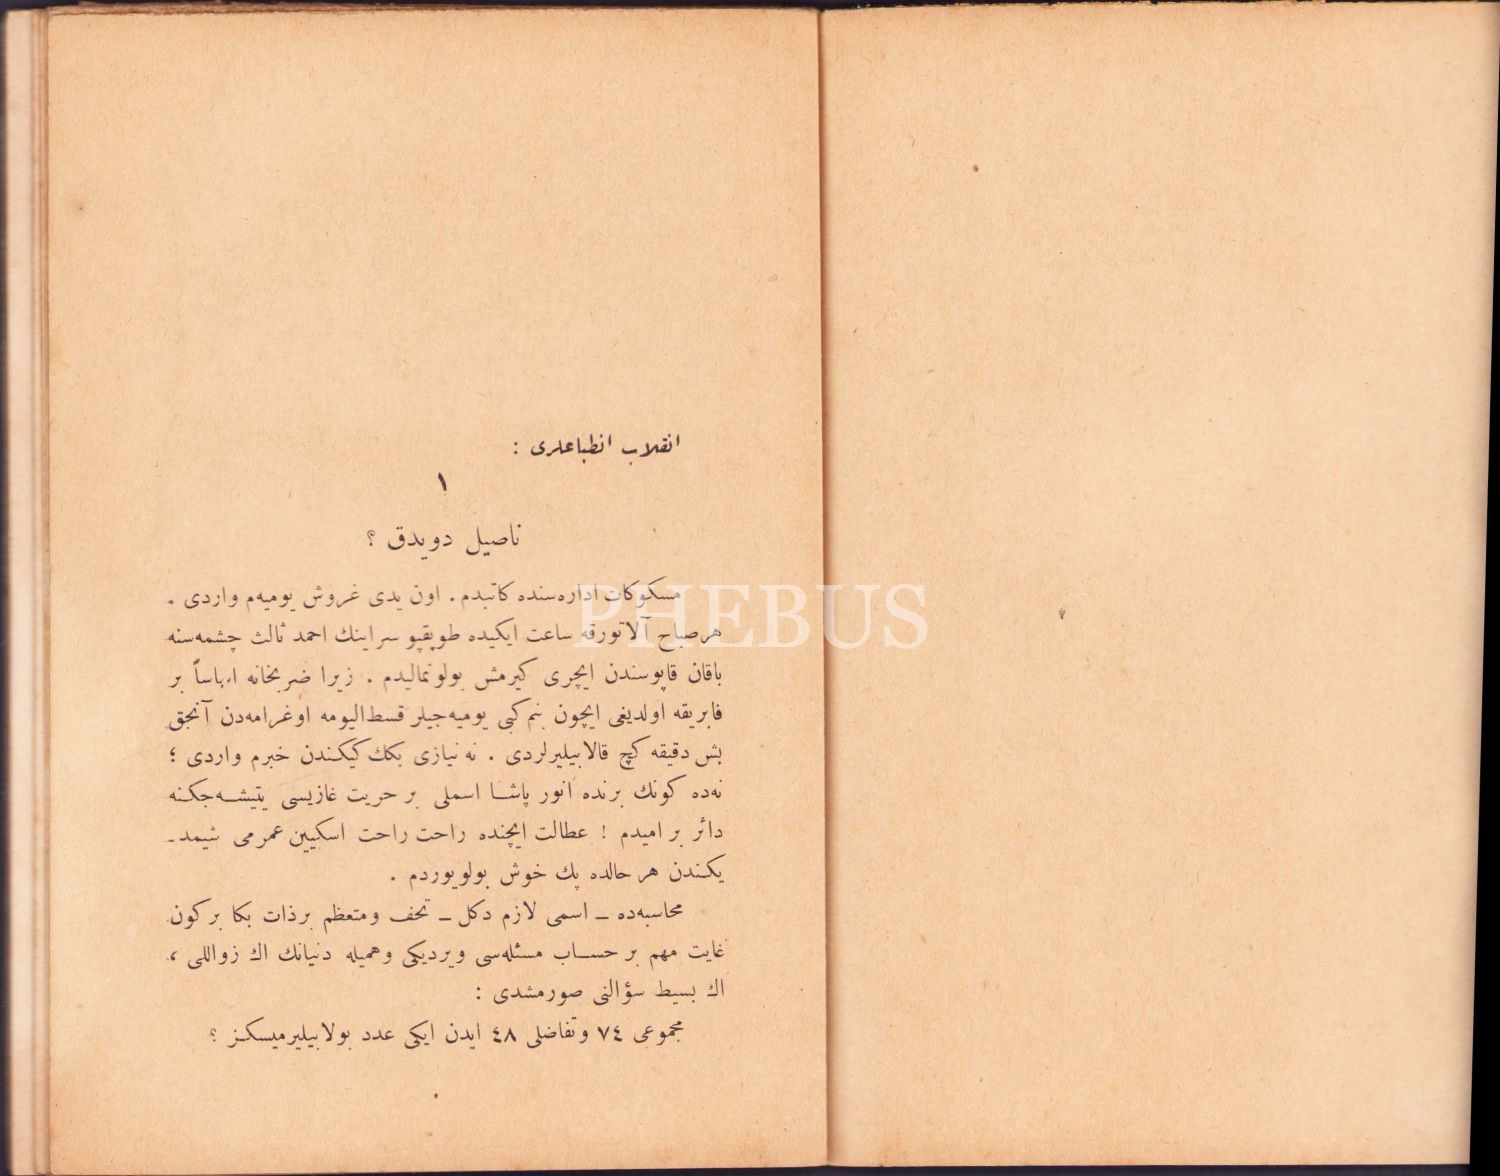 انقلاب انطباعلری :
١
ناصیل دویدق ؟
مسكوكات اداره‌سنده كاتبدم . اون یدی غروش یومیه‌م واردی .
هر صباح آلاتورقه ساعت ایكیده طوپقپو سراینك احمد ثالث چشمه‌سنه
باقان قاپوسندن ایچری كیرمش بولونمالیدم . زیرا ضربخانه اساساً بر
فابریقه اولدیغی ایچون بنم كبی یومیه‌جیلر قسط‌الیومه اوغرامه‌دن آنجق
بش دقیقه كچ قالابیلیرلردی . نه نیازی بكك كیكندن خبرم واردی ؛
نه‌ده كونك برنده انور پاشا اسملی بر حریت غازیسی یتیشه‌جكنه
دائر بر امیدم ! عطالت ایچنده راحت راحت اسكیین عمرمی شیمد ـ
یكندن هر حالده پك خوش بولویوردم .
محاسبه‌ده ـ اسمی لازم دكل ـ تحف و متعظم بر ذات بكا بر كون
غایت مهم بر حساب مسئله‌سی ویردیكی وهمیله دنیانك اك زواللی ،
اك بسیط سؤالنی صورمشدی :
مجموعی ٧٤ و تفاضلی ٤٨ ایدن ایكی عدد بولابیلیرمیسكز ؟
PHEBUS